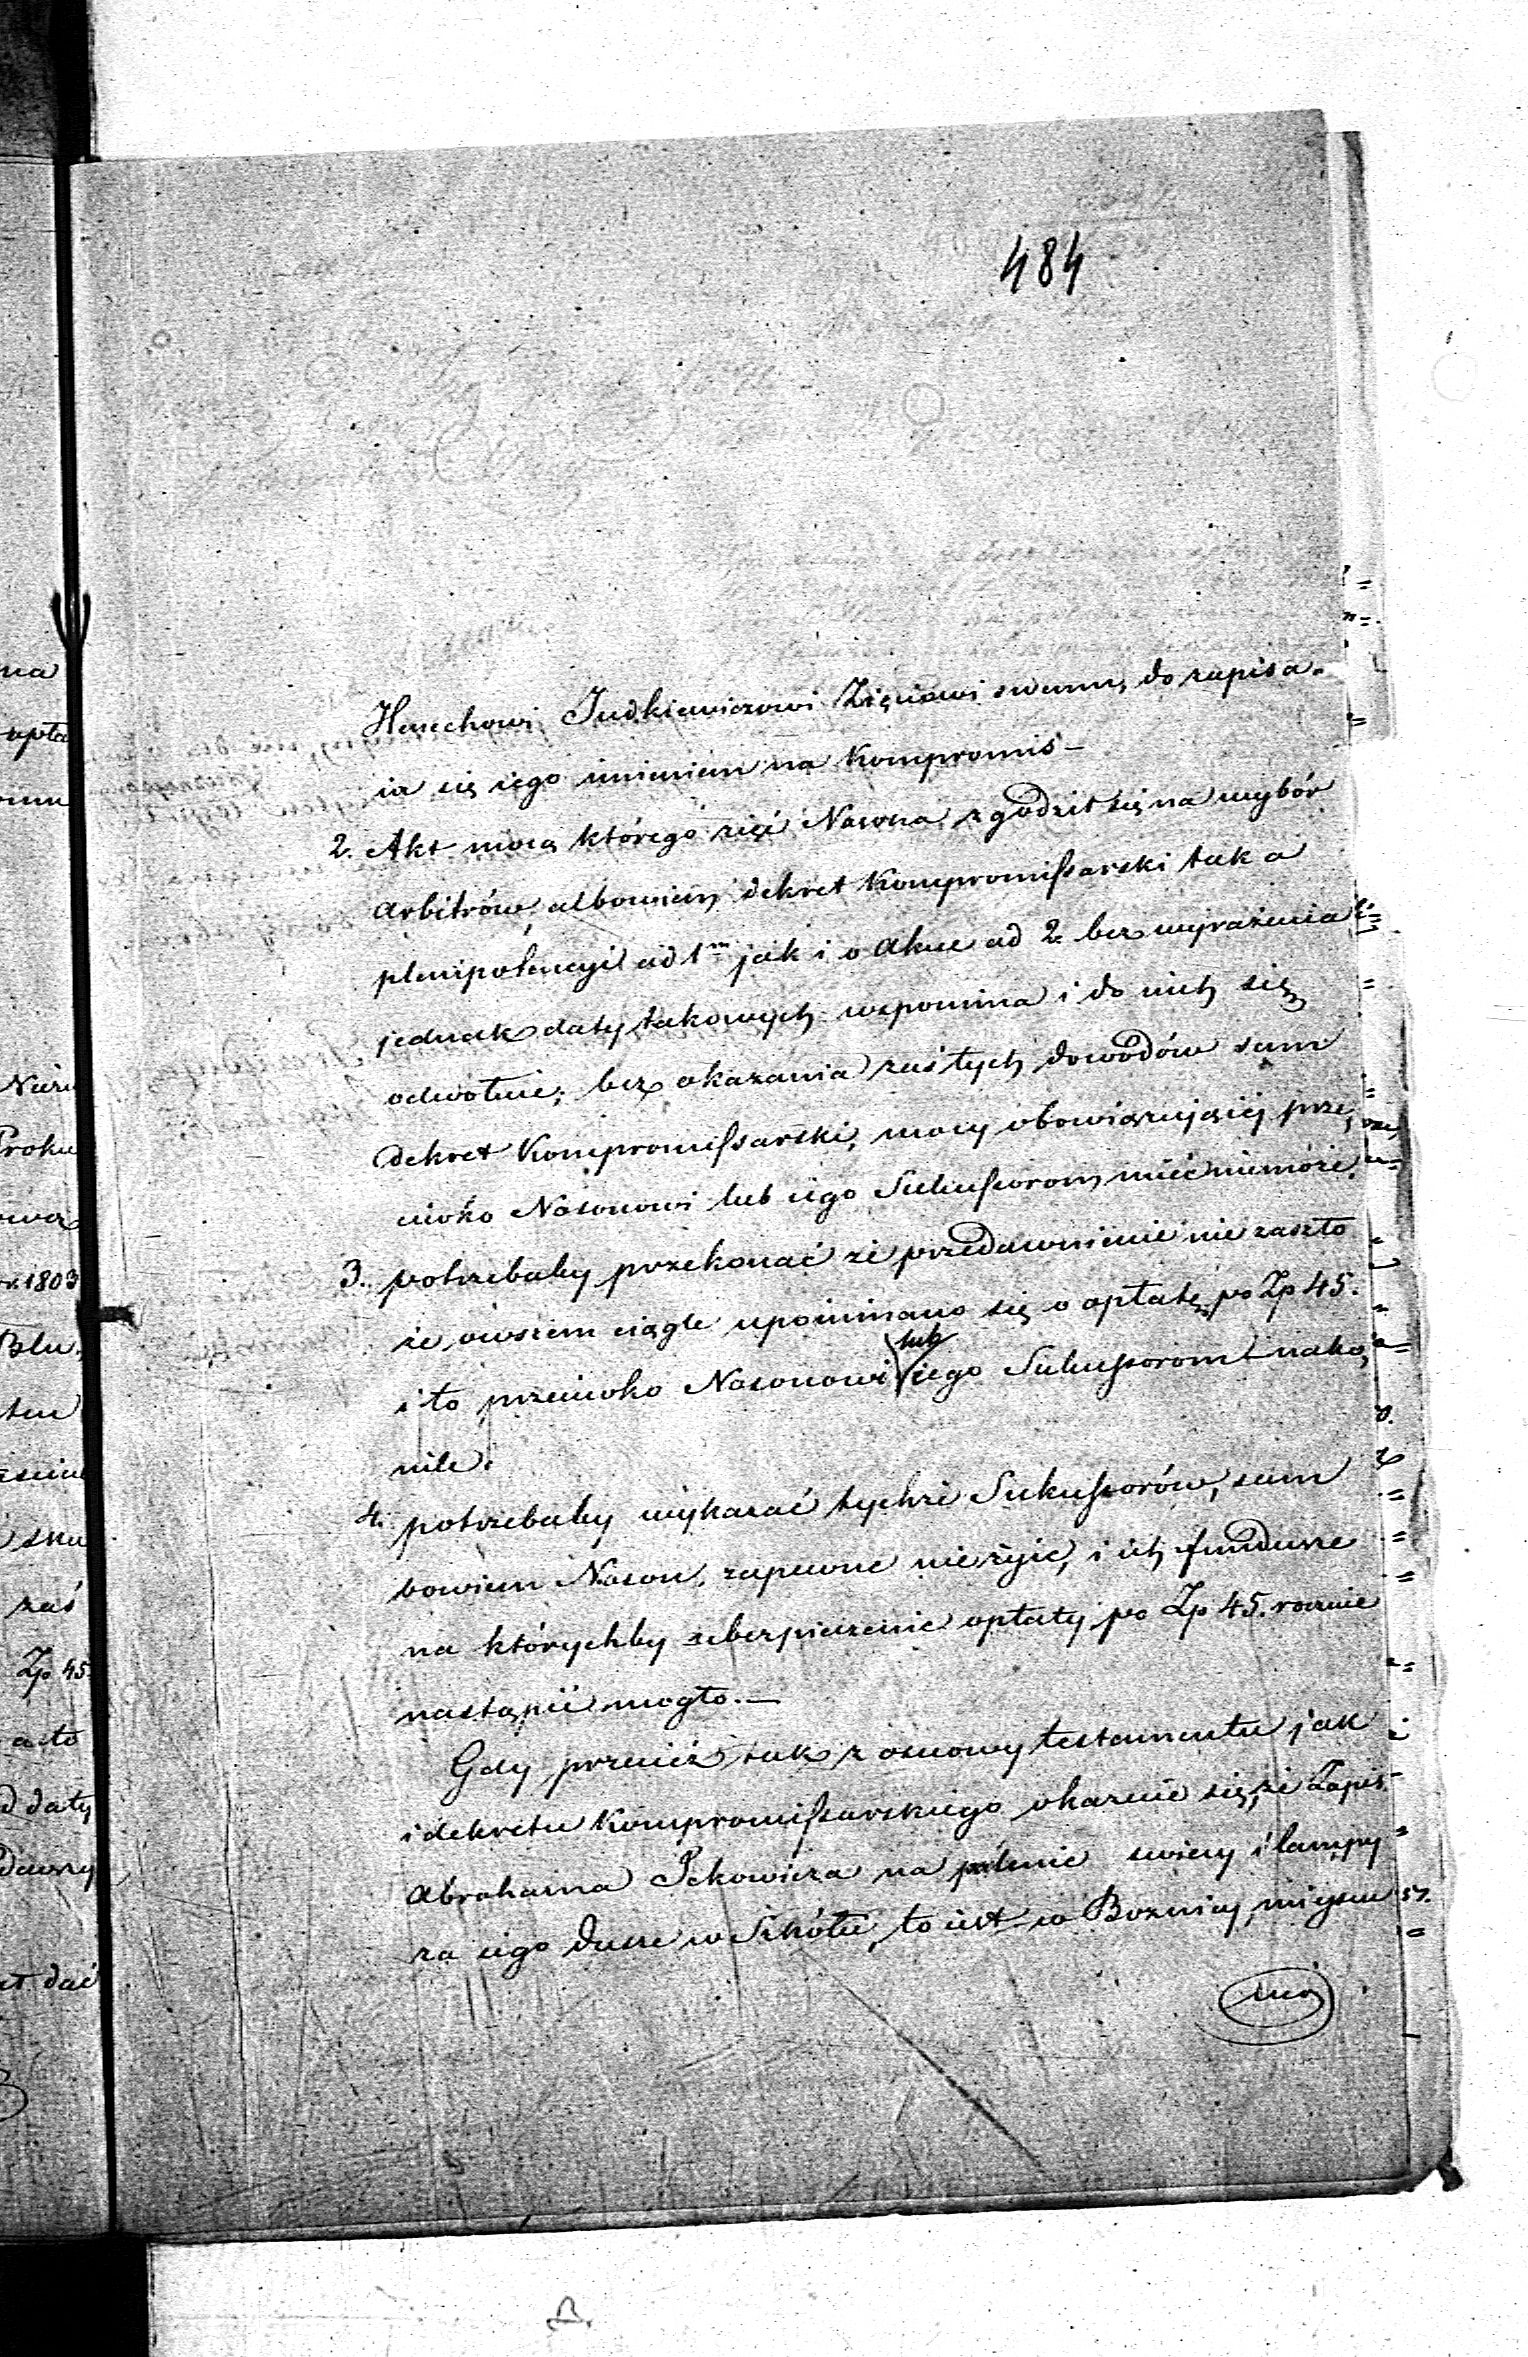 484
Herschowi Judkiewiczowi Zięciowi swemu, do zapisa-
nia się iego imieniem na Kompromis –
2. Akt mocą którego zięć Nasona zgodził się na wybór
Arbitrów, albowiem dekret Kompromissarski tak o
plenipotencyi ad 1m jak i o Akcie ad 2. bez wyrażenia
jednak daty takowych wspomina i do nich się
odwołuie; bez okazania zaś tych dowodów sam
dekret Kompromissarski, mocy obowiązuiącéj prze,
ciwko Nasonowi lub iego Sukcessorom mieć niemoże.
3. potrzebaby przekonać że przedawnienie nie zaszło
że owszem ciągle upominano się o opłatę po Zp 45.
i to przeciwko Nasonowi lub iego Sukcessorom – nako,
niec.
4. potrzebaby wykazać tychże Sukcessorów, sam
bowiem Nason, zapewne nie żyie, i ich fundusze
na którychby zabezpieczenie opłaty po Zp 45. rocznie
nastąpić mogło. –
Gdy przecież tak z osnowy testamentu jak
i dekretu Kompromissarskiego okazuie się, że Zapis
Abrahama Jckowicza na palenie swiecy i lampy
za iego dusze w Szkole, to iest w Boznicy, miysca